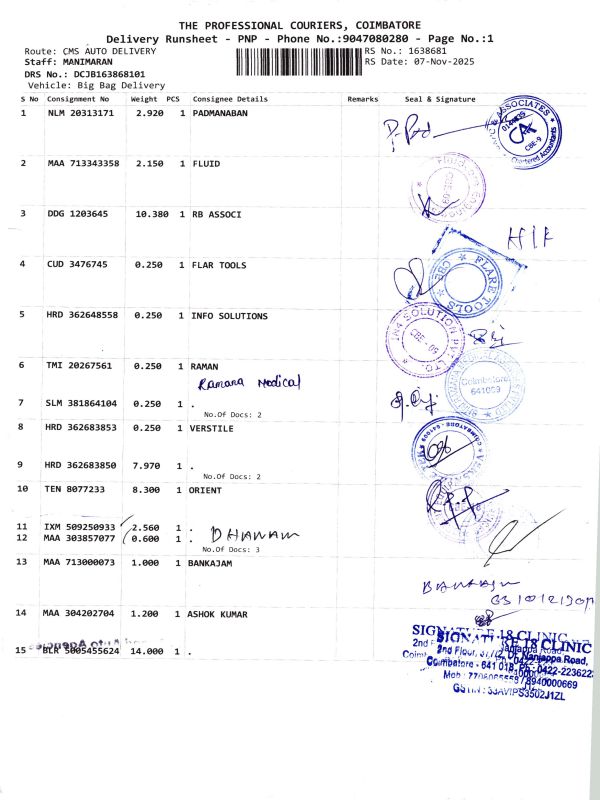 THE PROFESSIONAL COURIERS, COIMBATORE
Delivery Runsheet - PNP - Phone No.:9047080280 - Page No.:1
Route: CMS AUTO DELIVERY RS No.: 1638681
Staff: MANIMARAN RS Date: 07-Nov-2025
DRS No.: DCJB163868101
Vehicle: Big Bag Delivery
S No Consignment No Weight PCS Consignee Details Remarks Seal & Signature
1 NLM 20313171 2.920 1 PADMANABAN
ASSOCIATES
CBE-9
Chartered Accountants
2 MAA 713343358 2.150 1 FLUID
3 DDG 1203645 10.380 1 RB ASSOCI
4 CUD 3476745 0.250 1 FLAR TOOLS
FLARE TOOLS
CBE
5 HRD 362648558 0.250 1 INFO SOLUTIONS
SOLUTION PVT. LTD.
CBE - 09
6 TMI 20267561 0.250 1 RAMAN
Ramana Medical
Coimbatore
641009
7 SLM 381864104 0.250 1 .
No.Of Docs: 2
8 HRD 362683853 0.250 1 VERSTILE
9 HRD 362683850 7.970 1 .
No.Of Docs: 2
10 TEN 8077233 8.300 1 ORIENT
11 IXM 509250933 2.560 1 .
12 MAA 303857077 0.600 1 . DHANAM
No.Of Docs: 3
13 MAA 713000073 1.000 1 BANKAJAM
14 MAA 304202704 1.200 1 ASHOK KUMAR
SIGNATURE 18 CLINIC
15 BLR 5005455624 14.000 1 .
2nd Floor, Dr. Nanjappa Road,
Coimbatore - 641 018. Ph : 0422-2236222
8940000669
GSTIN : 33AVIPS3502J1ZL